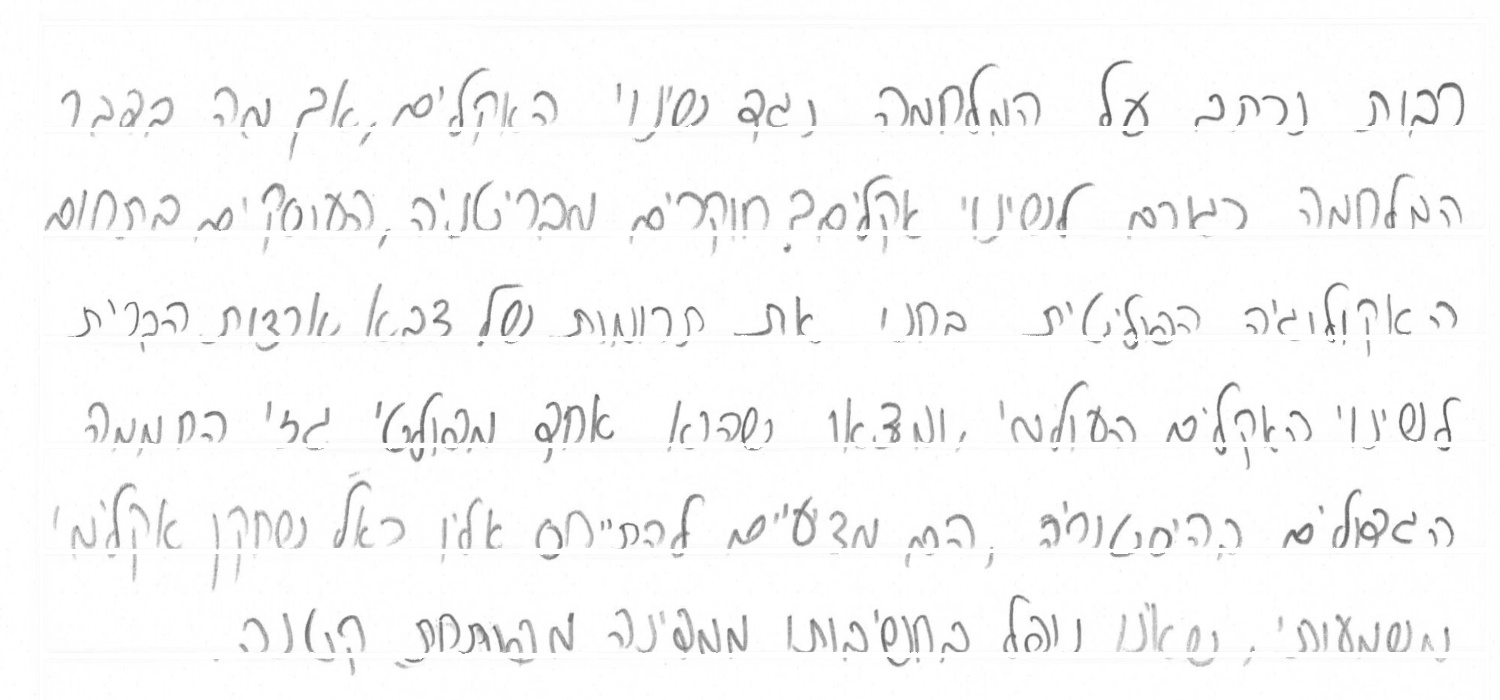 רבות נכתב על המלחמה נגד שינוי האקלים, אך מה בדבר
המלחמה כגורם לשינוי אקלים? חוקרים מבריטניה, העוסקים בתחום
האקולוגיה הפוליטית בחנו את תרומות של צבא ארצות הברית
לשינוי האקלים העולמי, ומצאו שהוא אחד מפולטי גזי החממה
הגדולים בהיסטוריה, הם מציעים להתייחס אליו כאל שחקן אקלימי
משמעותי, שאינו נופל בחשיבותו ממדינה מפותחת קטנה